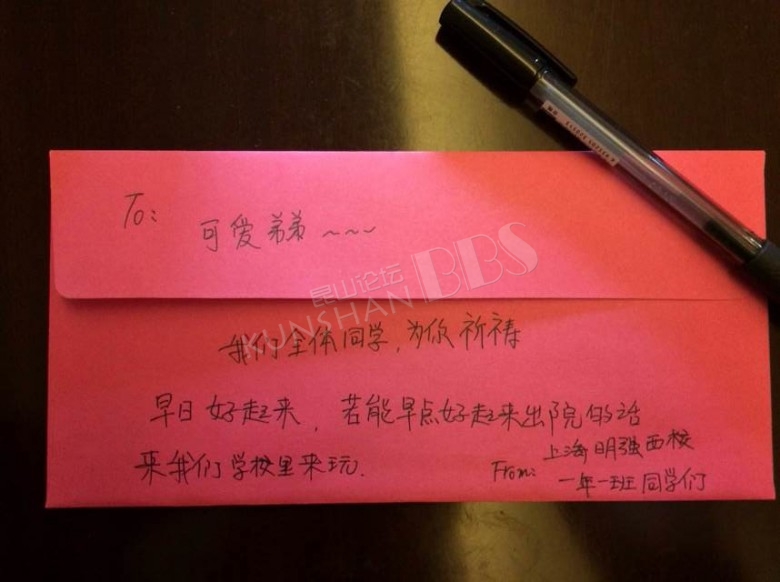 To:
可爱弟弟~~~
昆山论坛
KUNSHAN BBS
我们全体同学,为你祈祷
早日好起来,若能早点好起来出院的话
来我们学校里来玩.
From: 上海明强西校
一年一班同学们